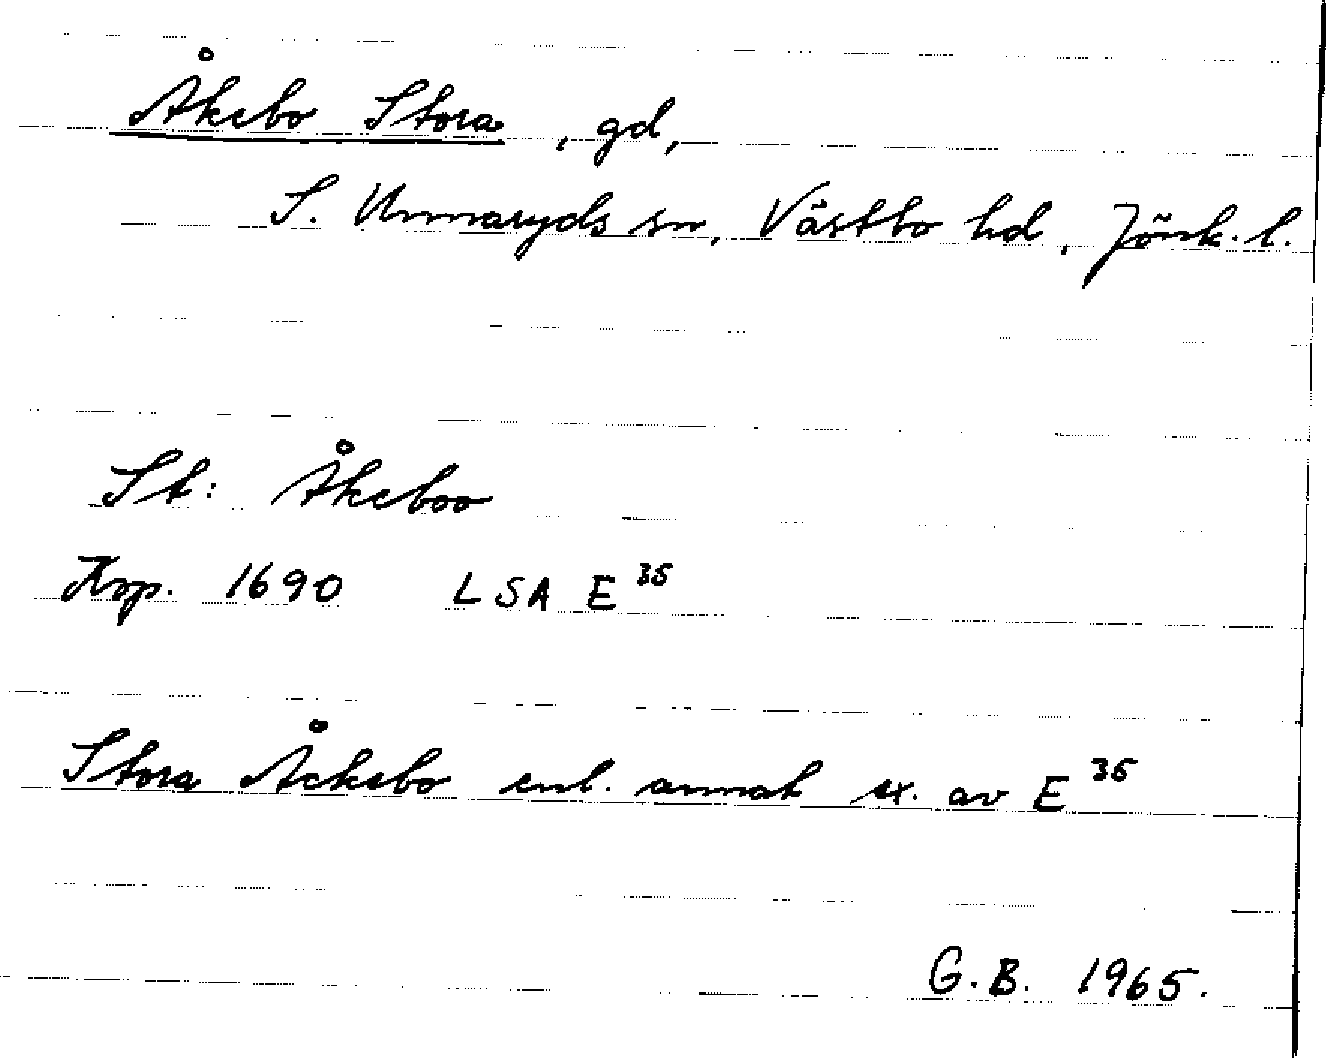 Åkebo Stora, gd,
S. Unnaryds sn, Västbo hd, Jönk. l.
St: Åkeboo
Krp. 1690 LSA E 35
Stora Åckebo enl. annat ex. av E 35
G.B. 1965.